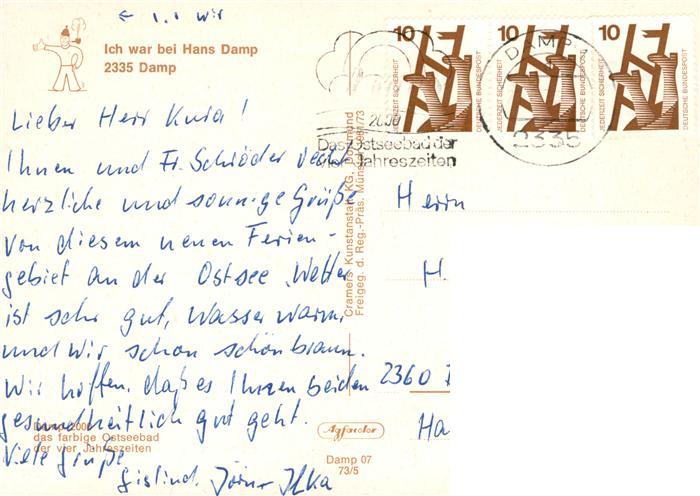 ← 1.1 wir
Ich war bei Hans Damp
2335 Damp
Lieber Herr Kura!
Ihnen und Fr. Schröder recht
herzliche und sonnige Grüße
von diesem neuen Ferien-
gebiet an der Ostsee. Wetter
ist sehr gut, Wasser warm,
und wir schon schön braun.
Wir hoffen, daß es Ihnen beiden
gesundheitlich gut geht.
Viele Grüße
Gislind, Jörn + Ilka
Damp 2000
das farbige Ostseebad
der vier Jahreszeiten
Cramers Kunstanstalt KG, Dortmund
Freigeg. d. Reg.-Präs. Münster
Agfacolor
Damp 07
73/5
2000
Das Ostseebad der
vier Jahreszeiten
DAMP
2335
10
JEDERZEIT SICHERHEIT
DEUTSCHE BUNDESPOST
10
JEDERZEIT SICHERHEIT
DEUTSCHE BUNDESPOST
10
JEDERZEIT SICHERHEIT
DEUTSCHE BUNDESPOST
Herrn
H.
2360
Ha